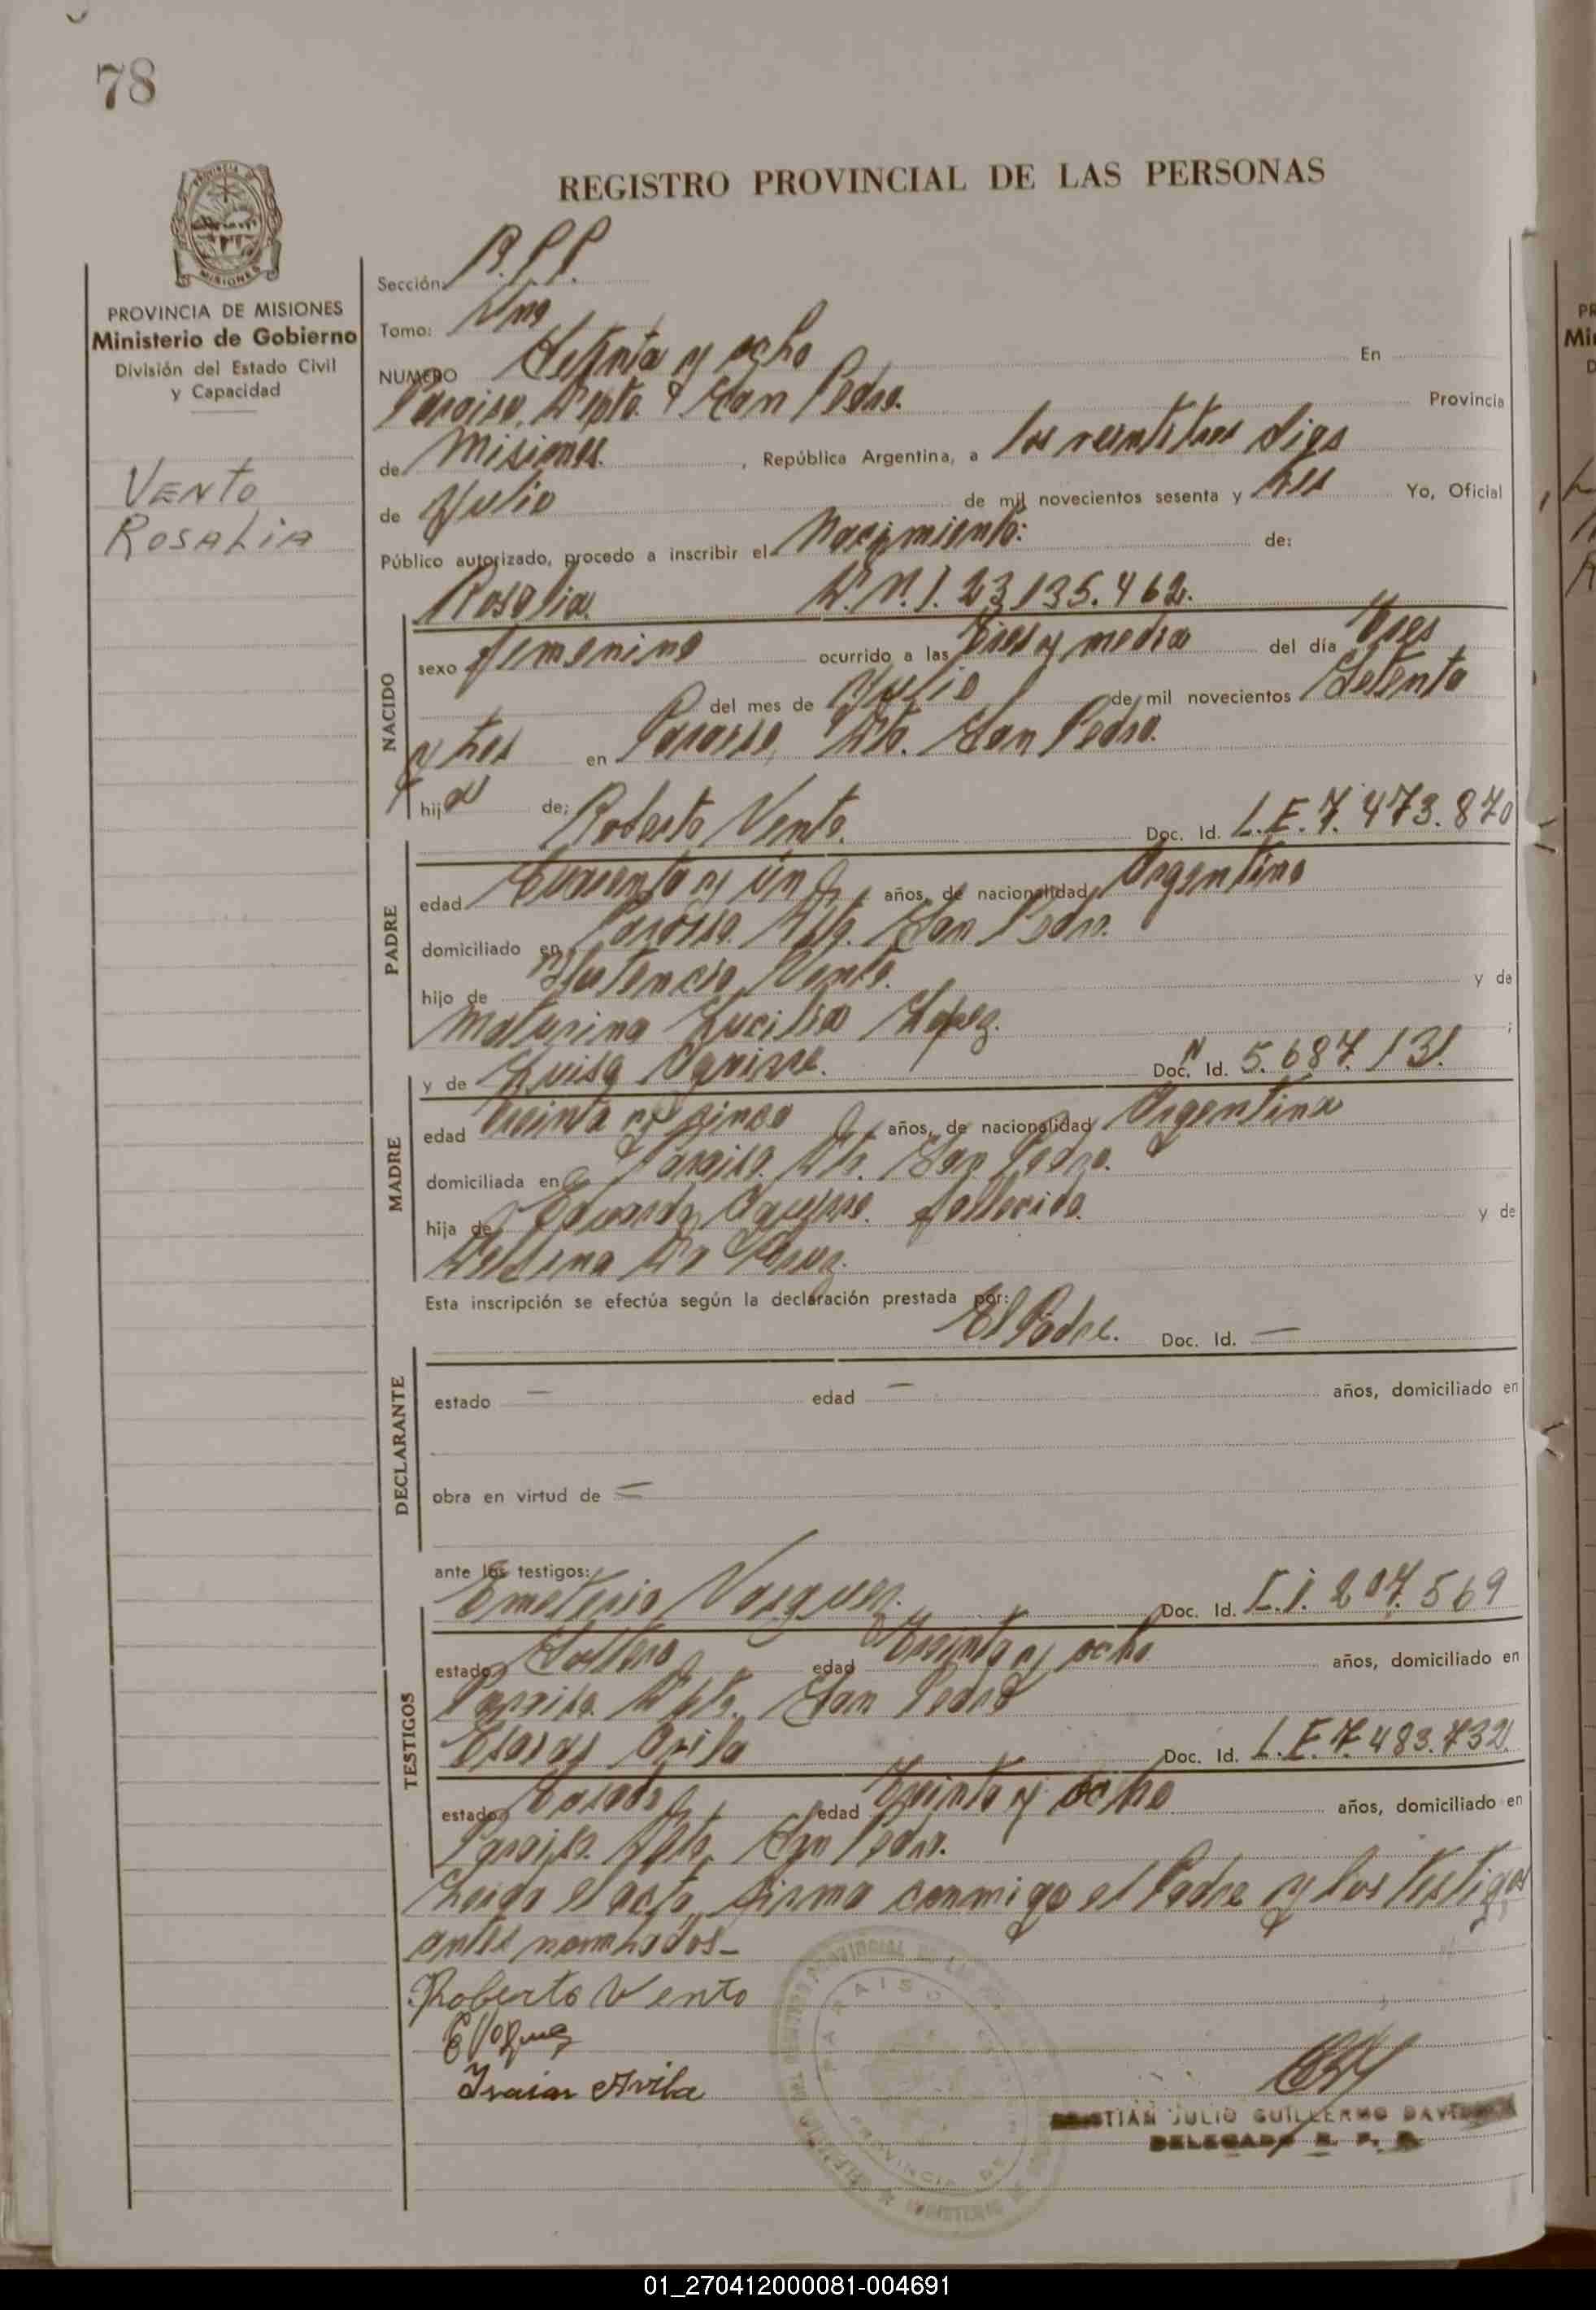 78
REGISTRO PROVINCIAL DE LAS PERSONAS
MISIONES
PROVINCIA DE MISIONES
Ministerio de Gobierno
División del Estado Civil
y Capacidad
VENTO
ROSALIA
Sección: R.P.P.
Tomo: Uno
NUMERO Setenta y ocho En
Paraiso, Dpto. San Pedro. Provincia
de Misiones. , República Argentina, a los veintitres dias
de Julio de mil novecientos sesenta y tres Yo, Oficial
Público autorizado, procedo a inscribir el Nacimiento: de:
Rosalia. D.N.I. 23.135.462.
NACIDO
sexo femenino ocurrido a las Dies y media del día Tres
del mes de Julio de mil novecientos Setenta
y tres en Paraiso, Dto. San Pedro.
hija de: Roberto Vento. Doc. Id. L.E. 7.473.870
PADRE
edad Cuarenta y un años, de nacionalidad Argentino
domiciliado en Paraiso. Dpto. San Pedro.
hijo de Vento. y de
Maturina Lucilia López. ;
MADRE
y de Luisa Aguirre. Doc. Id. N 5.687.131.
edad Treinta y cinco años, de nacionalidad Argentina
domiciliada en Paraiso. Dto. San Pedro.
hija de Eduardo Aguirre. fallecido. y de
Da Cruz.
Esta inscripción se efectúa según la declaración prestada por:
El Padre. Doc. Id. —
DECLARANTE
estado — edad — años, domiciliado en
obra en virtud de =
ante los testigos:
TESTIGOS
Emeterio Vasquez. Doc. Id. C.I. 207.569
estado Soltero edad Treinta y ocho años, domiciliado en
Paraiso. Dpto. San Pedro
Avila Doc. Id. L.E. 7.483.732.
estado Casado edad Treinta y ocho años, domiciliado en
Paraiso. Dpto. San Pedro.
Leida el acta, firma conmigo el Padre y los testigos
antes nombrados-
Roberto Vento
Isaias Avila
PARAISO
PROVINCIA DE
CRISTIAN JULIO GUILLERMO
DELEGADO R. P. P.
01_270412000081-004691